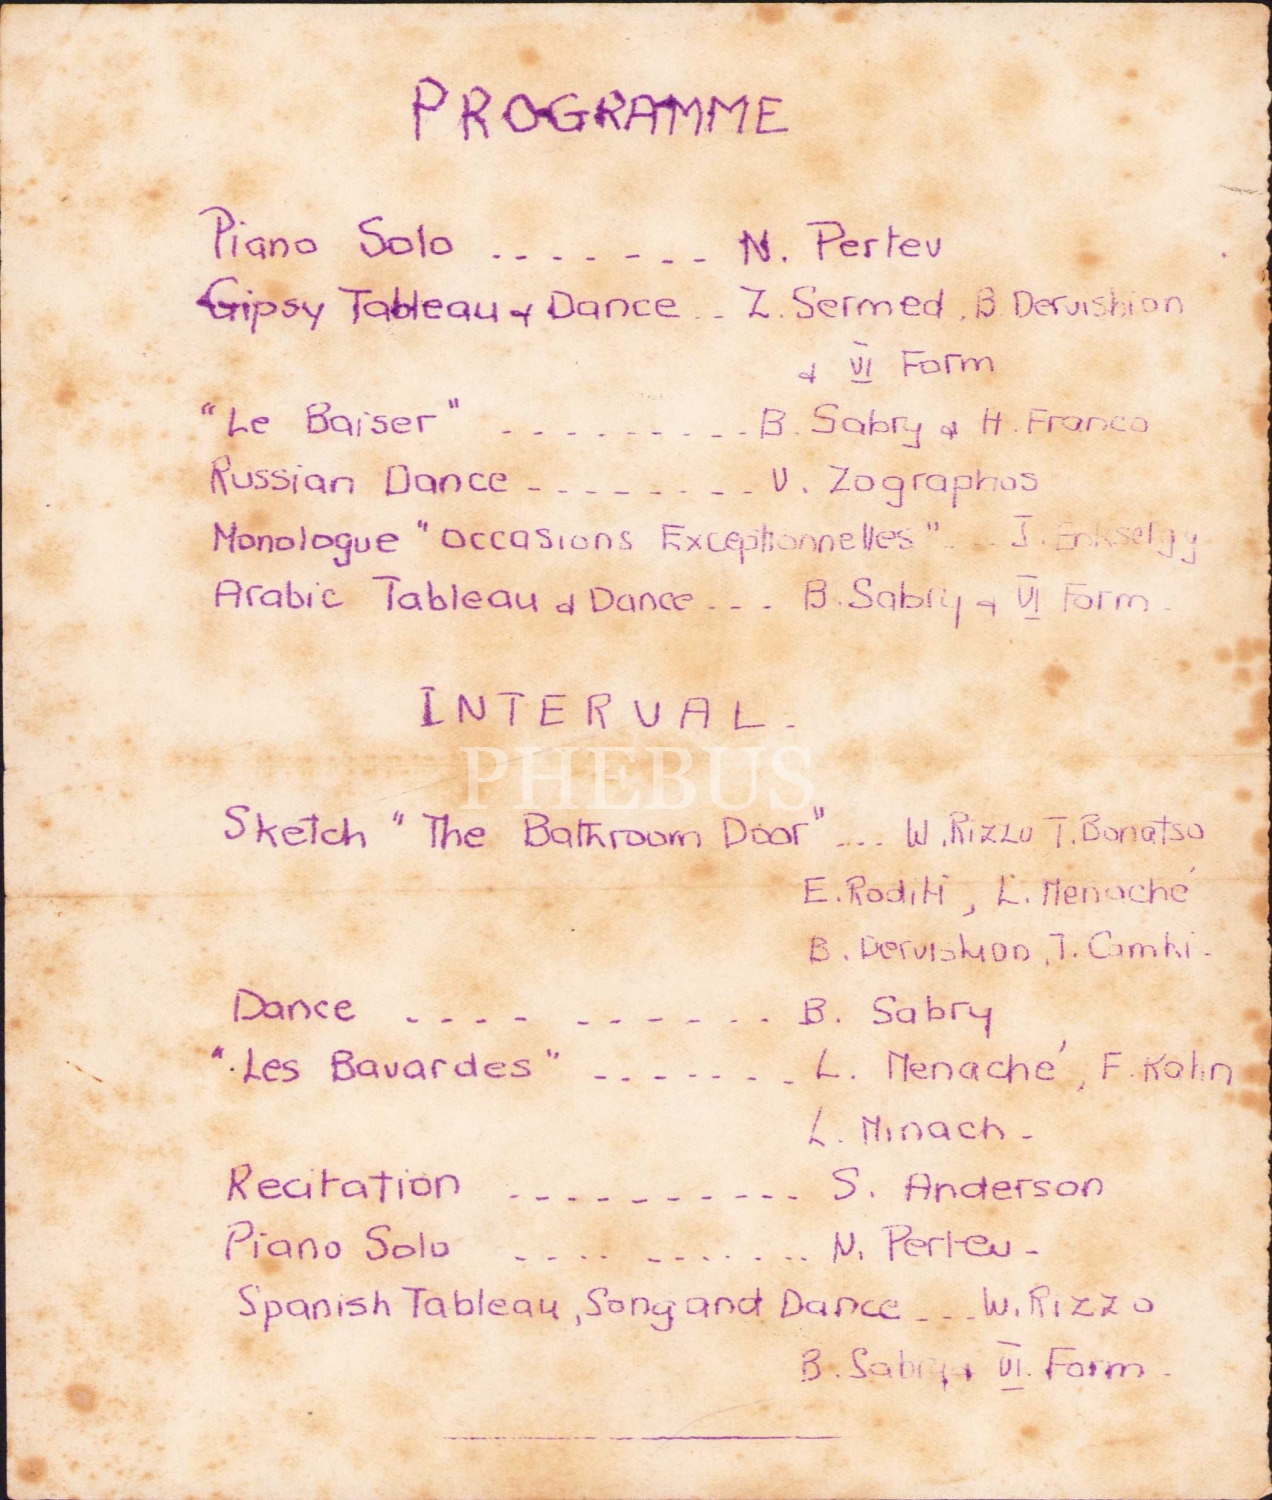 PROGRAMME
Piano Solo ....... N. Pertev
Gipsy Tableau & Dance .. Z. Sermed, B. Dervishian
& VI Form
"Le Baiser" ......... B. Sabry & H. Franco
Russian Dance ........ V. Zographos
Monologue "Occasions Exceptionnelles" ... J.
Arabic Tableau & Dance ... B. Sabry & VI Form.
INTERVAL.
PHEBUS
Sketch "The Bathroom Door" ... W. Rizzo T. Bonatso
E. Roditi, L. Menaché
B. Dervishian, T. Camhi.
Dance .... ...... B. Sabry
"Les Bavardes" ....... L. Menaché, F. Kahn
L. Minach.
Recitation .......... S. Anderson
Piano Solo .... ....... N. Pertev.
Spanish Tableau, Song and Dance ... W. Rizzo
B. Sabry & VI. Form.